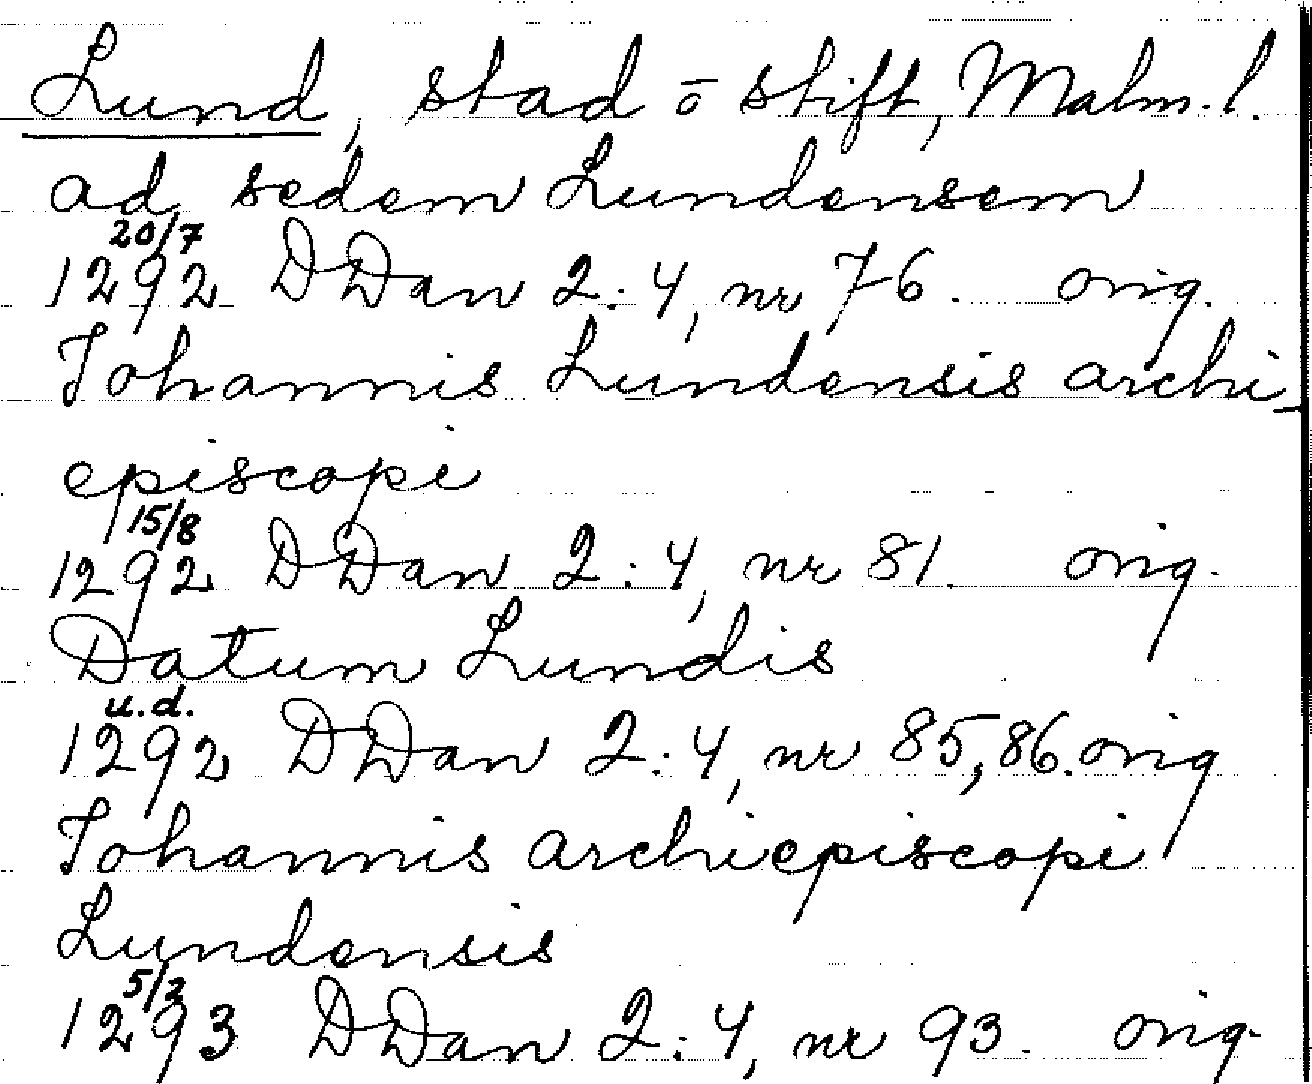 Lund, stad o stift, Malm. l.
ad sedem Lundensem
20/7
1292 DDan 2:4, nr 76. orig.
Johannis Lundensis archi-
episcopi
15/8
1292 DDan 2:4, nr 81. orig.
Datum Lundis
u.d.
1292 DDan 2:4, nr 85, 86. orig
Johannis archiepiscopi
Lundensis
5/2
1293 DDan 2:4, nr 93. orig.